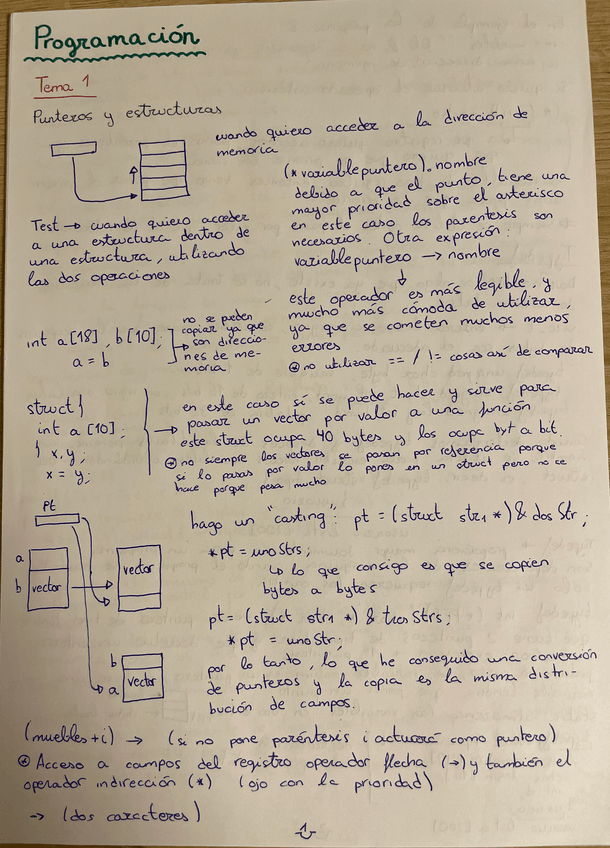 Programación
Tema 1
Punteros y estructuras
cuando quiero acceder a la dirección de
memoria
Test → cuando quiero acceder
a una estructura dentro de
una estructura, utilizando
las dos operaciones
(* variable puntero). nombre
debido a que el punto, tiene una
mayor prioridad sobre el asterisco
en este caso los parentesis son
necesarios. Otra expresión:
variable puntero → nombre
↓
este operador es más legible, y
mucho más cómoda de utilizar,
ya que se cometen muchos menos
errores
⊛ no utilizar == / != cosas así de comparar
int a[18], b[10];
a = b
no se pueden
copiar ya que
→ son direccio-
nes de me-
moria
struct {
int a [10];
} x, y;
x = y;
→ en este caso sí se puede hacer y sirve para
pasar un vector por valor a una función
este struct ocupa 40 bytes y los ocupa byt a bit.
⊛ no siempre los vectores se pasan por referencia porque
si lo pasas por valor lo pones en un struct pero no se
hace porque pesa mucho
pt
a
b vector
vector
b
a vector
hago un "casting": pt = (struct str1 *) & dos Str;
*pt = uno Strs;
↳ lo que consigo es que se copien
bytes a bytes
pt = (struct str1 *) & tres Strs;
*pt = uno Str;
por lo tanto, lo que he conseguido una conversión
de punteros y la copia es la misma distri-
bución de campos.
(muebles+i) → (si no pone paréntesis i actuará como puntero)
⊛ Acceso a campos del registro operador flecha (→) y también el
operador indirección (*) (ojo con la prioridad)
→ (dos caracteres)
-1-